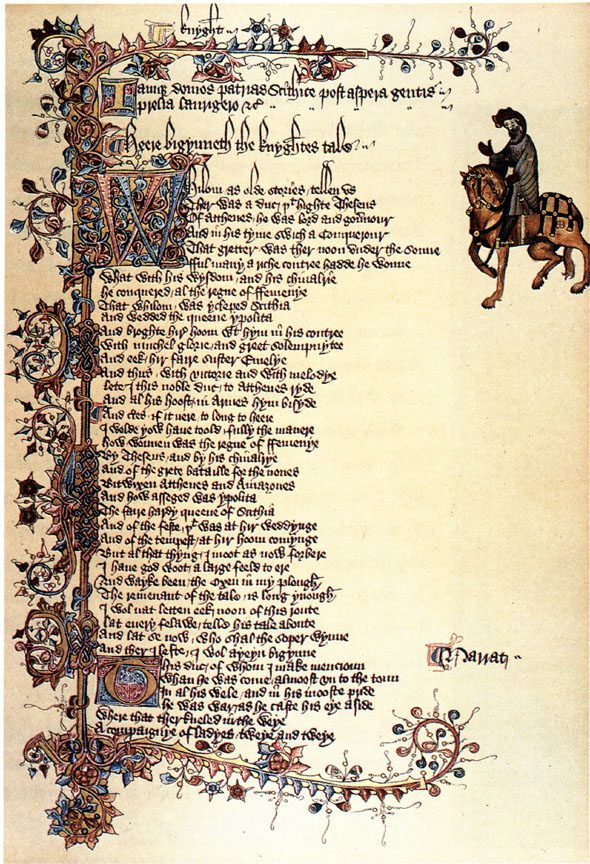 knyght
Iamqz domos patrias Scithice post aspera gentis
prelia laurigero &c
Heere bigynneth the knyghtes tale
Whilom as olde stories tellen vs
Ther was a duc þt highte Theseus
Of Atthenes he was lord and gouernour
And in his tyme swich a Conquerour
That gretter was ther noon vnder the sonne
fful many a riche contree hadde he wonne
What with his wysdom and his chiualrie
he conquered al the regne of ffemenye
That whilom was ycleped Scithia
And wedded the queene ypolita
And broghte hir hoom wt hym in his contree
With muchel glorie and greet solempnytee
And eek hir faire suster Emelye
And thus with victorie and with melodye
lete I this noble duc to Atthenes ryde
And al his hoost in Armes hym bisyde
And certes if it nere to long to heere
I wolde yow haue toold fully the manere
how wonnen was the regne of ffemenye
By Theseus and by his chiualrye
And of the grete bataille for the nones
Bitwixen Atthenes and Amazones
And how asseged was ypolita
The faire hardy queene of Scithia
And of the feste þt was at hir weddynge
And of the tempest at hir hoom comynge
But al that thyng I moot as now forbere
I haue god woot a large feeld to ere
And wayke been the Oxen in my plough
The remenant of the tale is long ynough
I wol nat letten eek noon of this route
lat euery felawe telle his tale aboute
And lat se now who shal the soper wynne
And ther I lefte I wol ayeyn bigynne
Narrat
This duc of whom I make mencioun
Whan he was come almoost vn to the toun
In al his wele and in his mooste pride
he was war as he caste his eye aside
Where that ther kneled in the weye
A compaignye of ladyes tweye and tweye